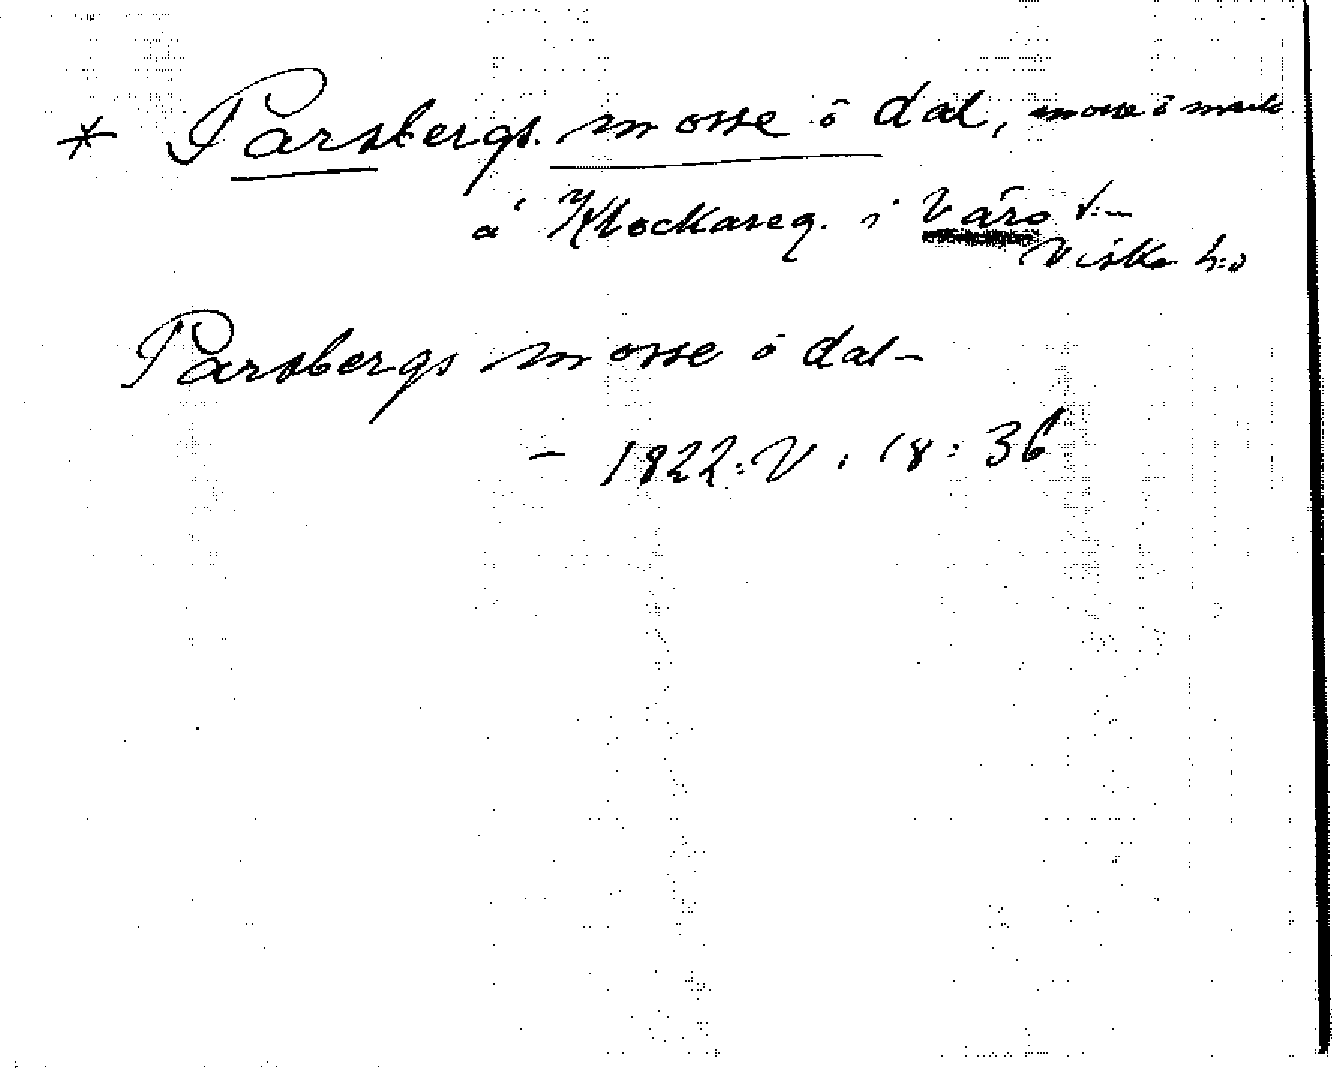 * Parsbergs mosse o dal, mosse o mark
å Klockareg. i Värö s:n
Viske h:d
Parsbergs mosse o dal -
- 1822: V. 18: 36